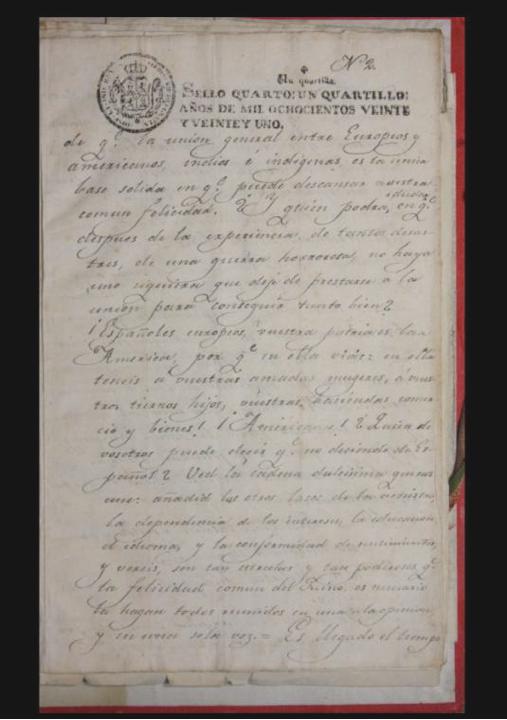 Nº 2.
Un quartillo.
SELLO QUARTO: UN QUARTILLO:
AÑOS DE MIL OCHOCIENTOS VEINTE
Y VEINTE Y UNO.
de q.e la union general entre Europeos y
americanos, indios é indigenas, es la unica
base solida en q.e puede descansar nuestra
comun felicidad. ¿Y quien podra, en q.e
despues de la experiencia de tantos desas-
tres, de una guerra horrorosa, no haya
uno siquiera que deje de prestarse a la
union para conseguir tanto bien?
¡Españoles europeos, vuestra patria es la
America, por q.e en ella vivis: en ella
teneis a vuestras amadas mugeres, á vues-
tros tiernos hijos, vuestras haciendas, comer-
cio y bienes! ¡Americanos! ¿Quien de
vosotros puede decir q.e no desciende de Es-
pañol? Ved la cadena dulcisima que nos
une: añadid los otros lazos de la amistad,
la dependencia de los intereses, la educacion,
el idioma, y la conformidad de sentimientos,
y vereis, son tan estrechos y tan poderosos q.e
la felicidad comun del Reino, es necesario
la hagan todos reunidos en una sola opinion
y en una sola voz. = Es llegado el tiempo